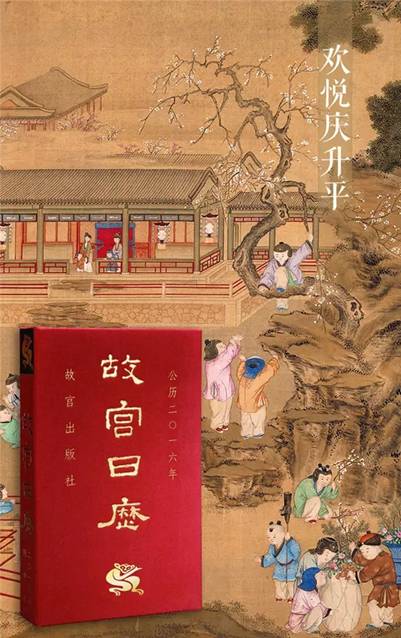 欢悦庆升平
公历二〇一六年
故宫日历
故宫出版社